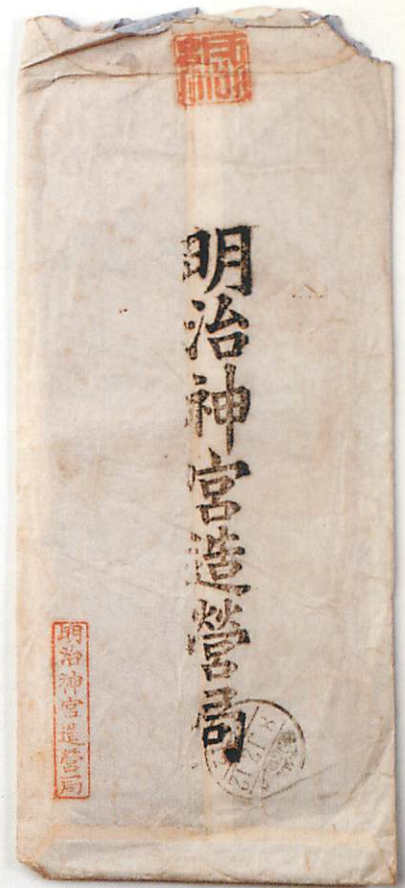 明治神宮造營局
明治神宮造營局